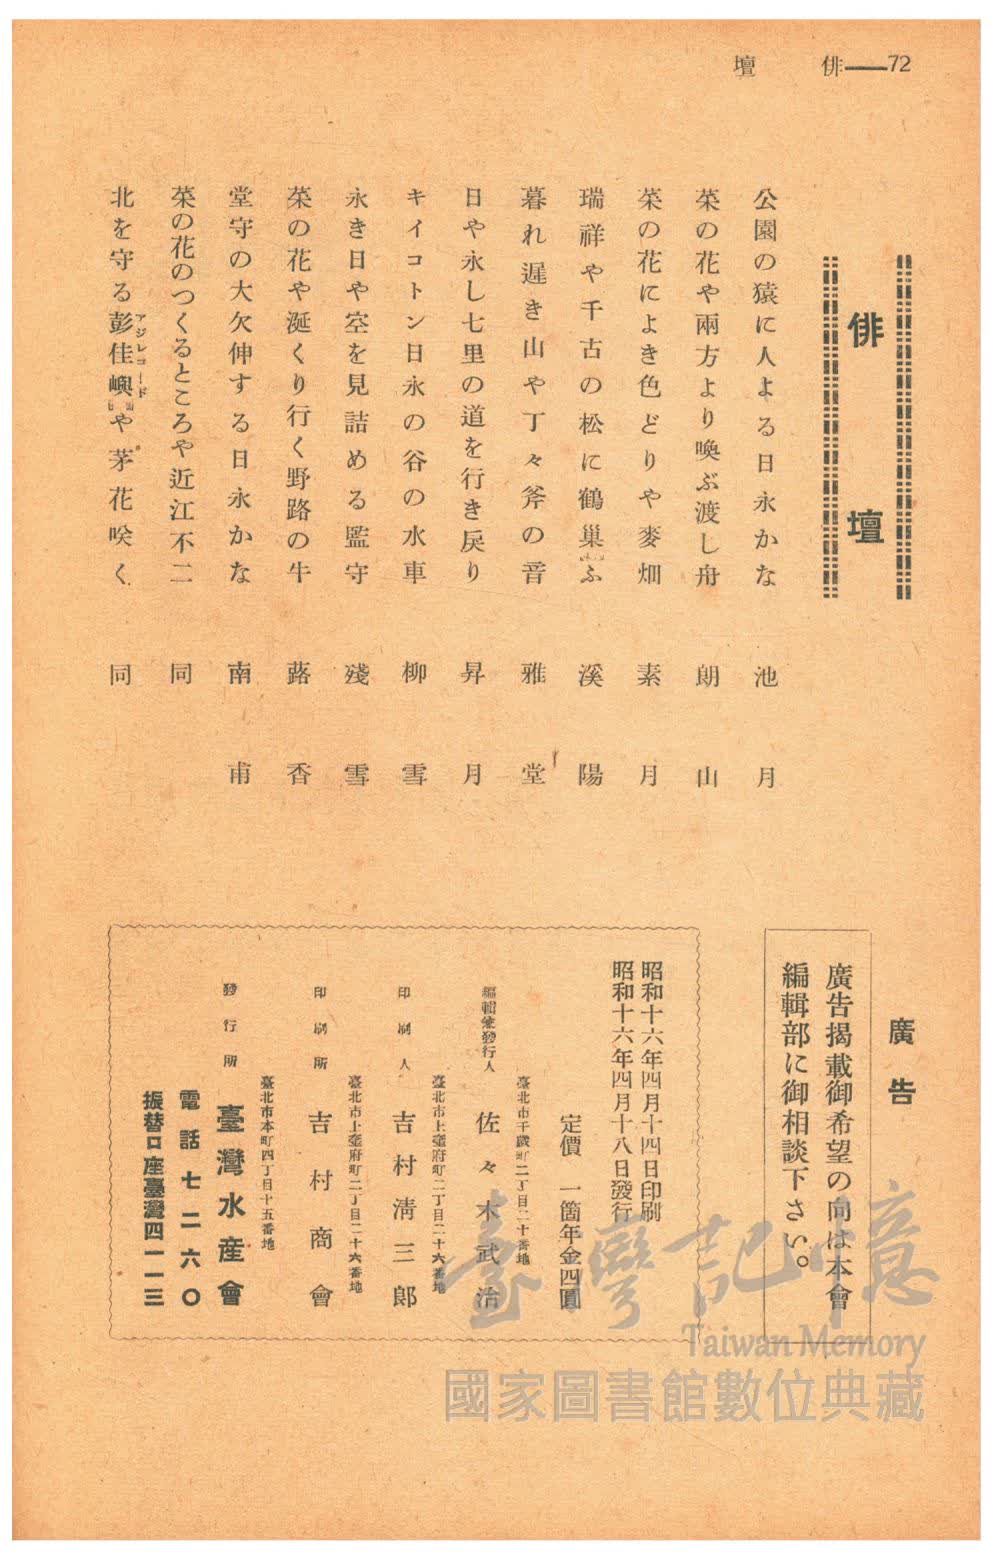 72——俳壇
俳壇
公園の猿に人よる日永かな 池月
菜の花や兩方より喚ぶ渡し舟 朗山
菜の花によき色どりや麥畑 素月
瑞祥や千古の松に鶴巢ふ 溪陽
暮れ遲き山や丁々斧の音 雅堂
日や永し七里の道を行き戾り 昇月
キイコトン日永の谷の水車 柳雪
永き日や空を見詰める監守 殘雪
菜の花や涎くり行く野路の牛 蕗香
堂守の大欠伸する日永かな 南甫
菜の花のつくるところや近江不二 同
北を守る彭佳嶼や茅花咲く 同
アジレコード
廣告
廣告揭載御希望の向は本會
編輯部に御相談下さい。
昭和十六年四月十四日印刷
昭和十六年四月十八日發行
定價 一箇年金四圓
臺北市千歲町二丁目二十番地
編輯兼發行人 佐々木武治
臺北市上奎府町二丁目二十六番地
印刷人 吉村淸三郞
臺北市上奎府町二丁目二十六番地
印刷所 吉村商會
臺北市本町四丁目十五番地
發行所 臺灣水產會
電話七二六〇
振替口座臺灣四一一三
臺灣記憶
Taiwan Memory
國家圖書館數位典藏